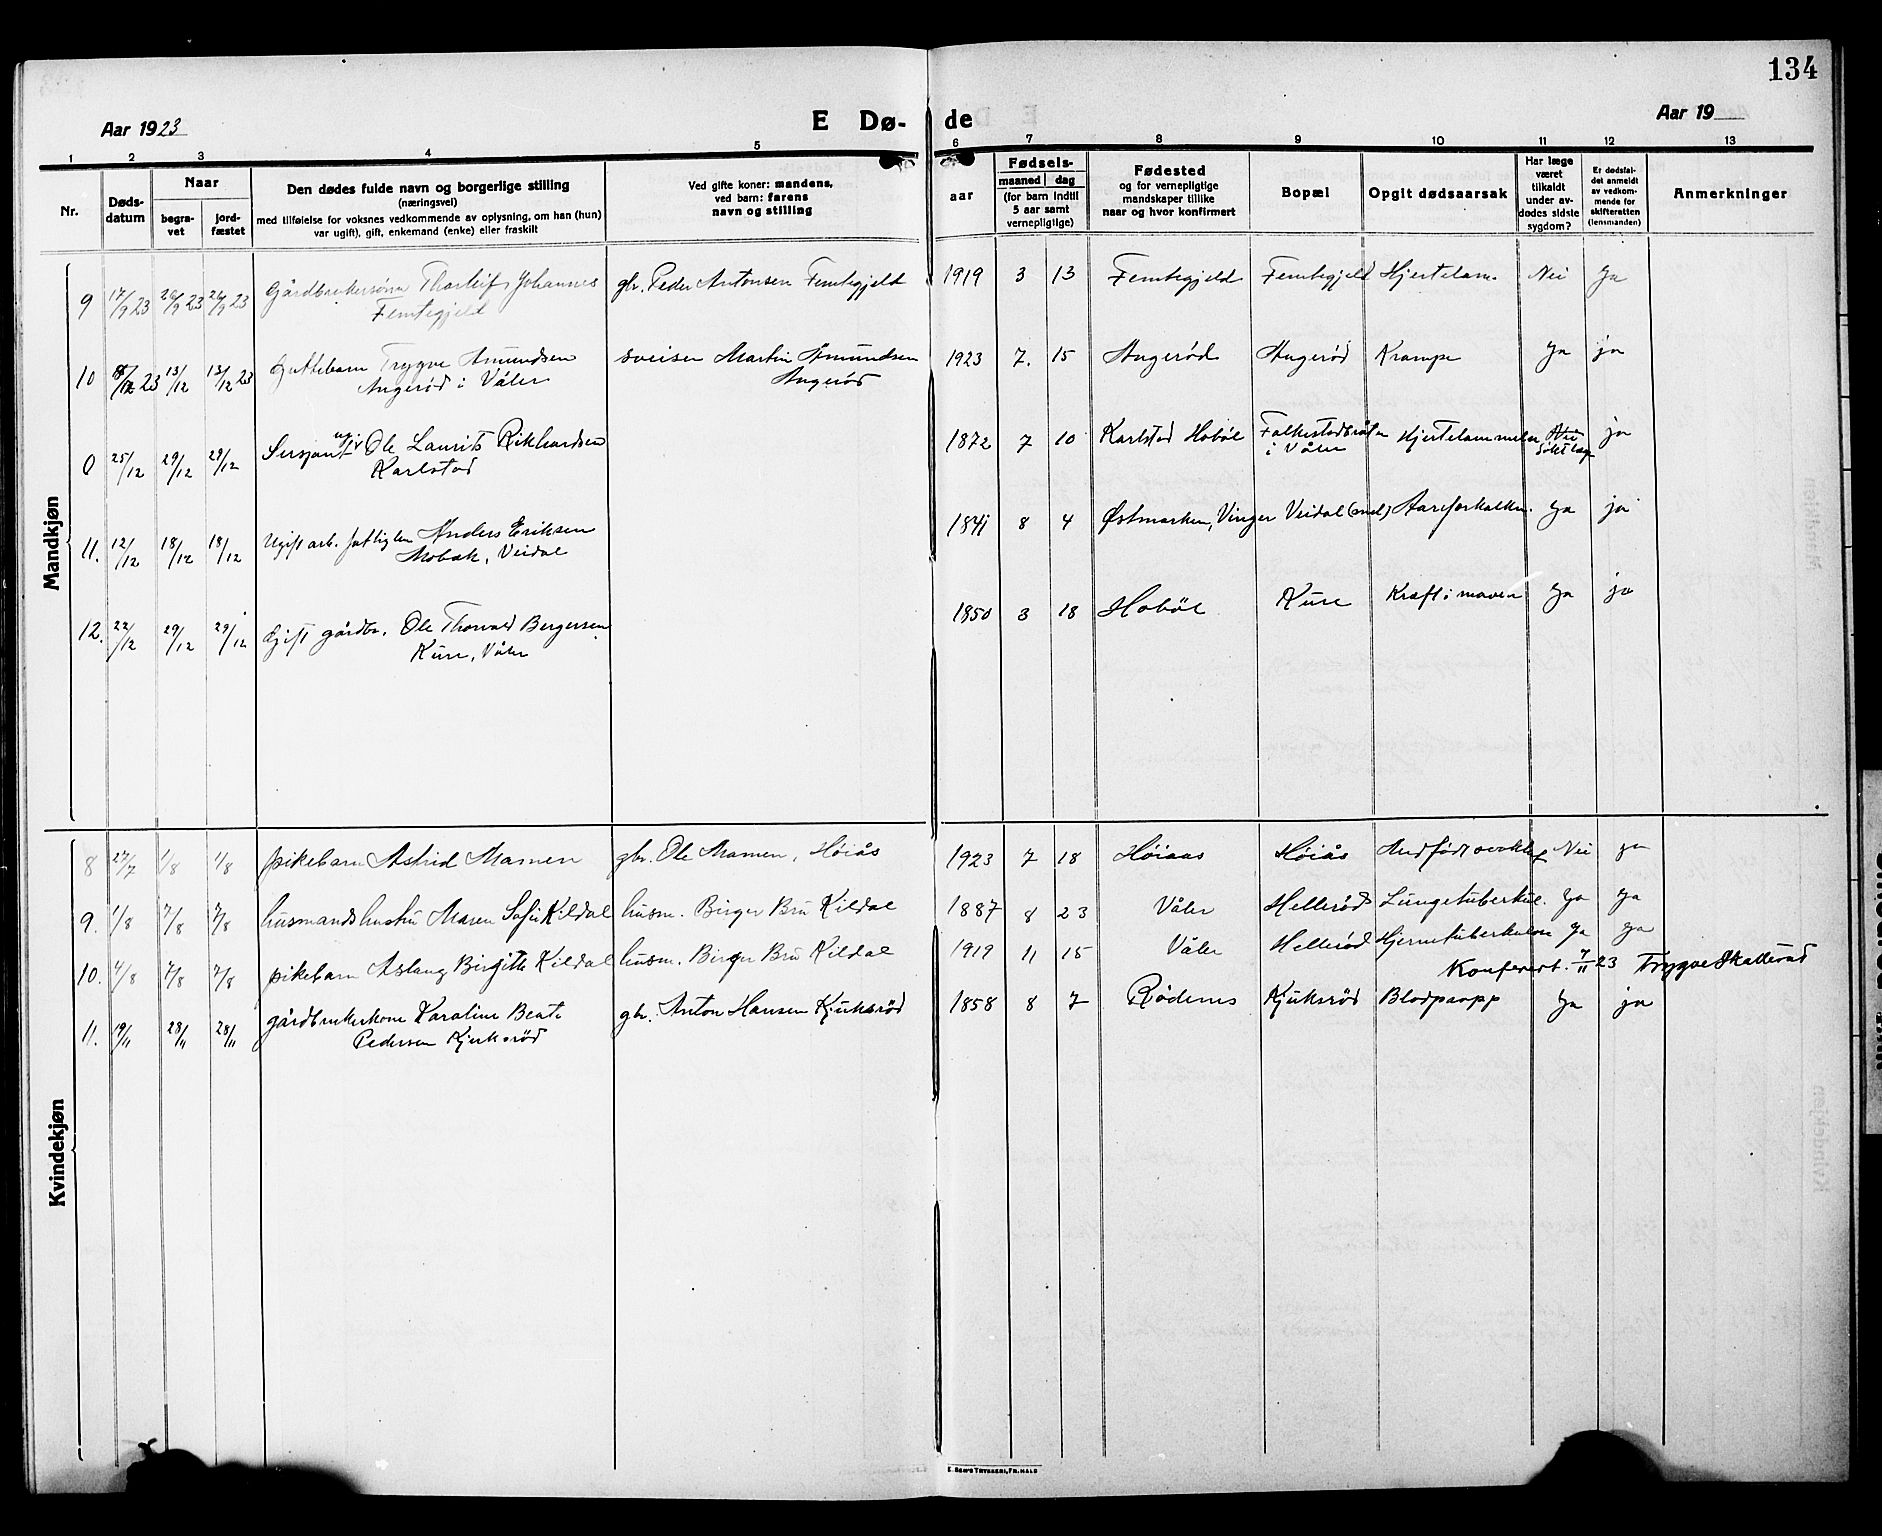 134
Aar 1923
E Dø- de
Aar 19
1 2 3 4 5 6 7 8 9 10 11 12 13
Nr.
Døds-
datum
Naar
begra-
vet
jord-
fæstet
Den dødes fulde navn og borgerlige stilling
(næringsvei)
med tilføielse for voksnes vedkommende av oplysning, om han (hun)
var ugift, gift, enkemand (enke) eller fraskilt
Ved gifte koner: mandens,
ved barn: farens
navn og stilling
aar
Fødsels-
maaned dag
(for barn indtil
5 aar samt
vernepligtige)
Fødested
og for vernepligtige
mandskaper tillike
naar og hvor konfirmert
Bopæl
Opgit dødsaarsak
Har læge
været
tilkaldt
under av-
dødes sidste
sygdom?
Er dødsfal-
det anmeldt
av vedkom-
mende for
skifteretten
(lensmanden)
Anmerkninger
Mandkjøn
9 17/9 23 26/9 23 26/9 23 Gårdbrukersønn Thorleif Johannes gbr. Peder Antonsen Femtegjeld 1919 3 13 Femtegjeld Femtegjeld Hjertelam. Nei Ja
Femtegjeld
10 23 13/12 13/12 23 Guttebarn Trygve Amundsen sveiser Martin Amundsen 1923 7. 15 Augerød Augerød Krampe Ja ja
Augerød i Våler Augerød
0 25/12 29/12 29/12 Sersjant Ole Laurits Rikhardsen 1872 7 10 Karlstad Hobøl Falkestadbråten Hjertelammelse Nei ja
Karlstad i Våler
11. 12/12 18/12 18/12 Ugift arb. fattiglem Anders Eriksen 1841 8 4 Østmarken, Vinger Veidal Aareforkalkn. Ja ja
Mobæk, Veidal
12. 22/12 29/12 29/12 Gift gårdbr. Ole Thorvald Bergersen 1850 3 18 Hobøl Kure Kræft i maven Ja ja
Kure, Våler
Kvindekjøn
8 27/7 1/8 1/8 pikebarn Astrid Mamen gbr. Ole Mamen, Høiås 1923 7 18 Høiaas Høiås Nei ja
9. 1/8 7/8 7/8 husmandshustru Maren Sofie Kildal husm. Birger Bru Kildal 1887 8 23 Våler Hellerød Lungetuberkul. Ja Ja
10. 4/8 7/8 7/8 pikebarn Aslaug Birgitte Kildal husm. Birger Bru Kildal 1919 11 15 Våler Hellerød Hjernetuberkulose Ja Ja
Konferert 7/11 23 Trygve Skatterud
11. 19/11 28/11 28/11 gårdbrukerkone Karoline Beate gbr. Anton Hansen Kjuksrød 1858 8 7 Rødenes Kjuksrød Blodpropp Ja ja
Pedersen Kjuksrød
E. SEM'S TRYKKERI, FR.HALD